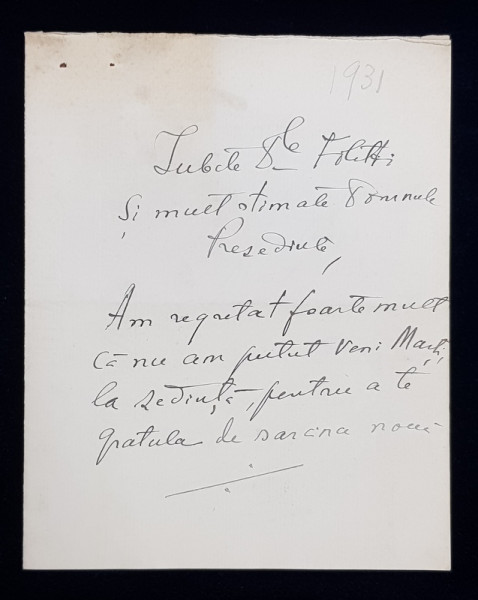 1931
Iubite Dle Filitti
și mult stimate Domnule
Președinte,
Am regretat foarte mult
că nu am putut veni Marți,
la ședință, pentru a te
gratula de sarcina nouă